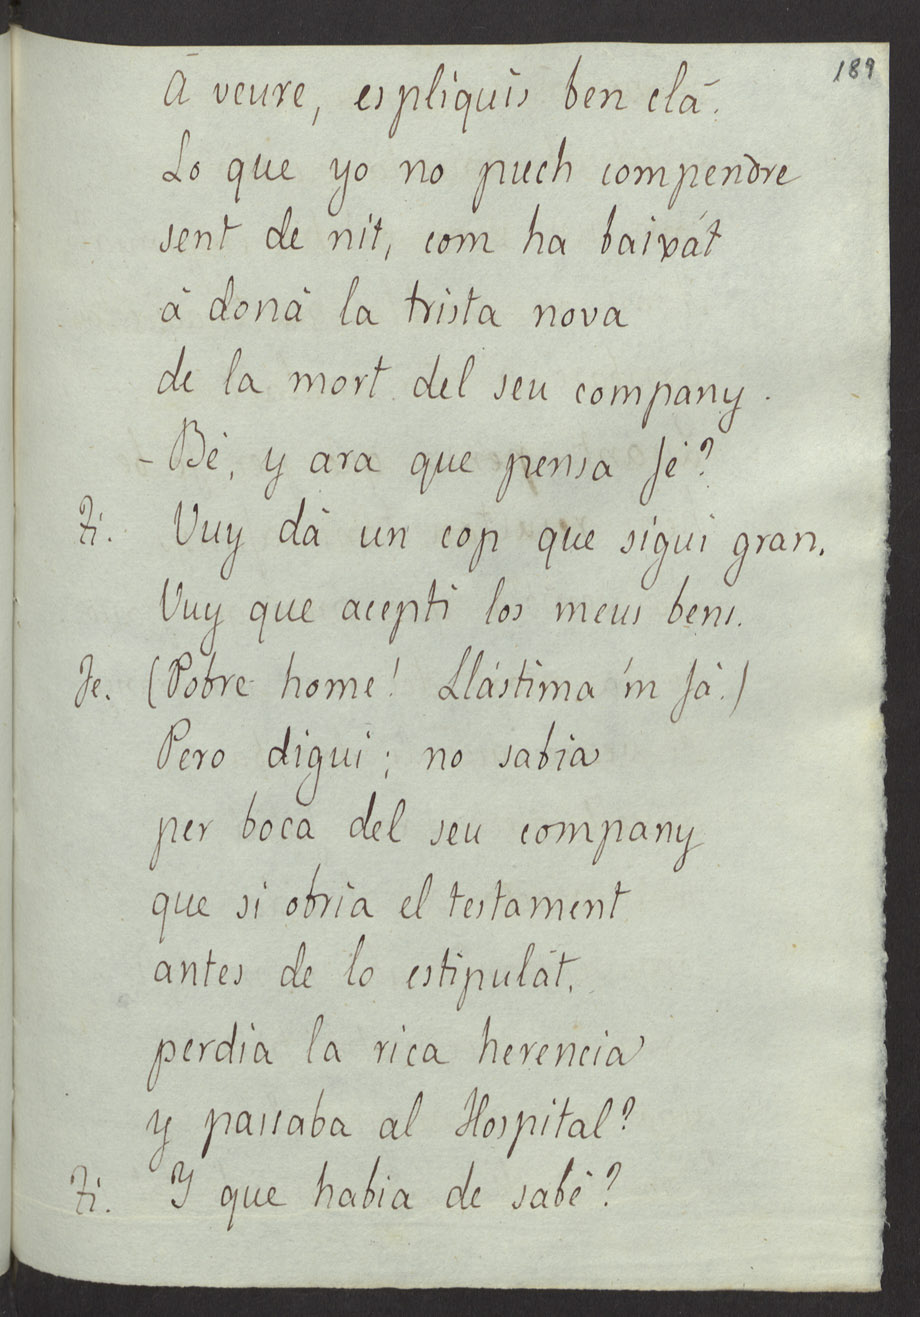 189
Á veure, espliquis ben clá.
Lo que yo no puch compendre
sent de nit, com ha baixát
á doná la trista nova
de la mort del seu company.
- Bé, y ara que pensa fé?
Fi. Vuy dá un cop que sigui gran.
Vuy que acepti los meus bens.
Je. (Pobre home! Llástima 'm fá.)
Pero digui; no sabia
per boca del seu company
que si obria el testament
antes de lo estipulát,
perdia la rica herencia
y passaba al Hospital?
Fi. Y que habia de sabé?